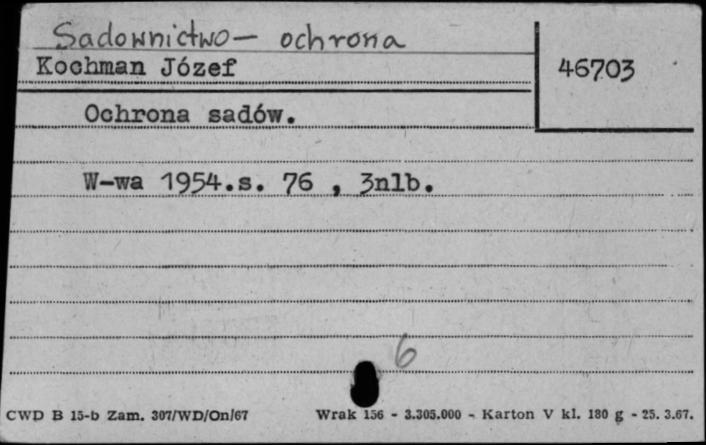 Sadownictwo - ochrona
Kochman Józef
46703
Ochrona sadów.
W-wa 1954.s. 76 , 3nlb.
6
CWD B 15-b Zam. 307/WD/On/67
Wrak 156 - 3.305.000 - Karton V kl. 180 g - 25. 3.67.